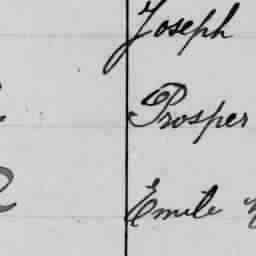 Joseph
Prosper
Emile